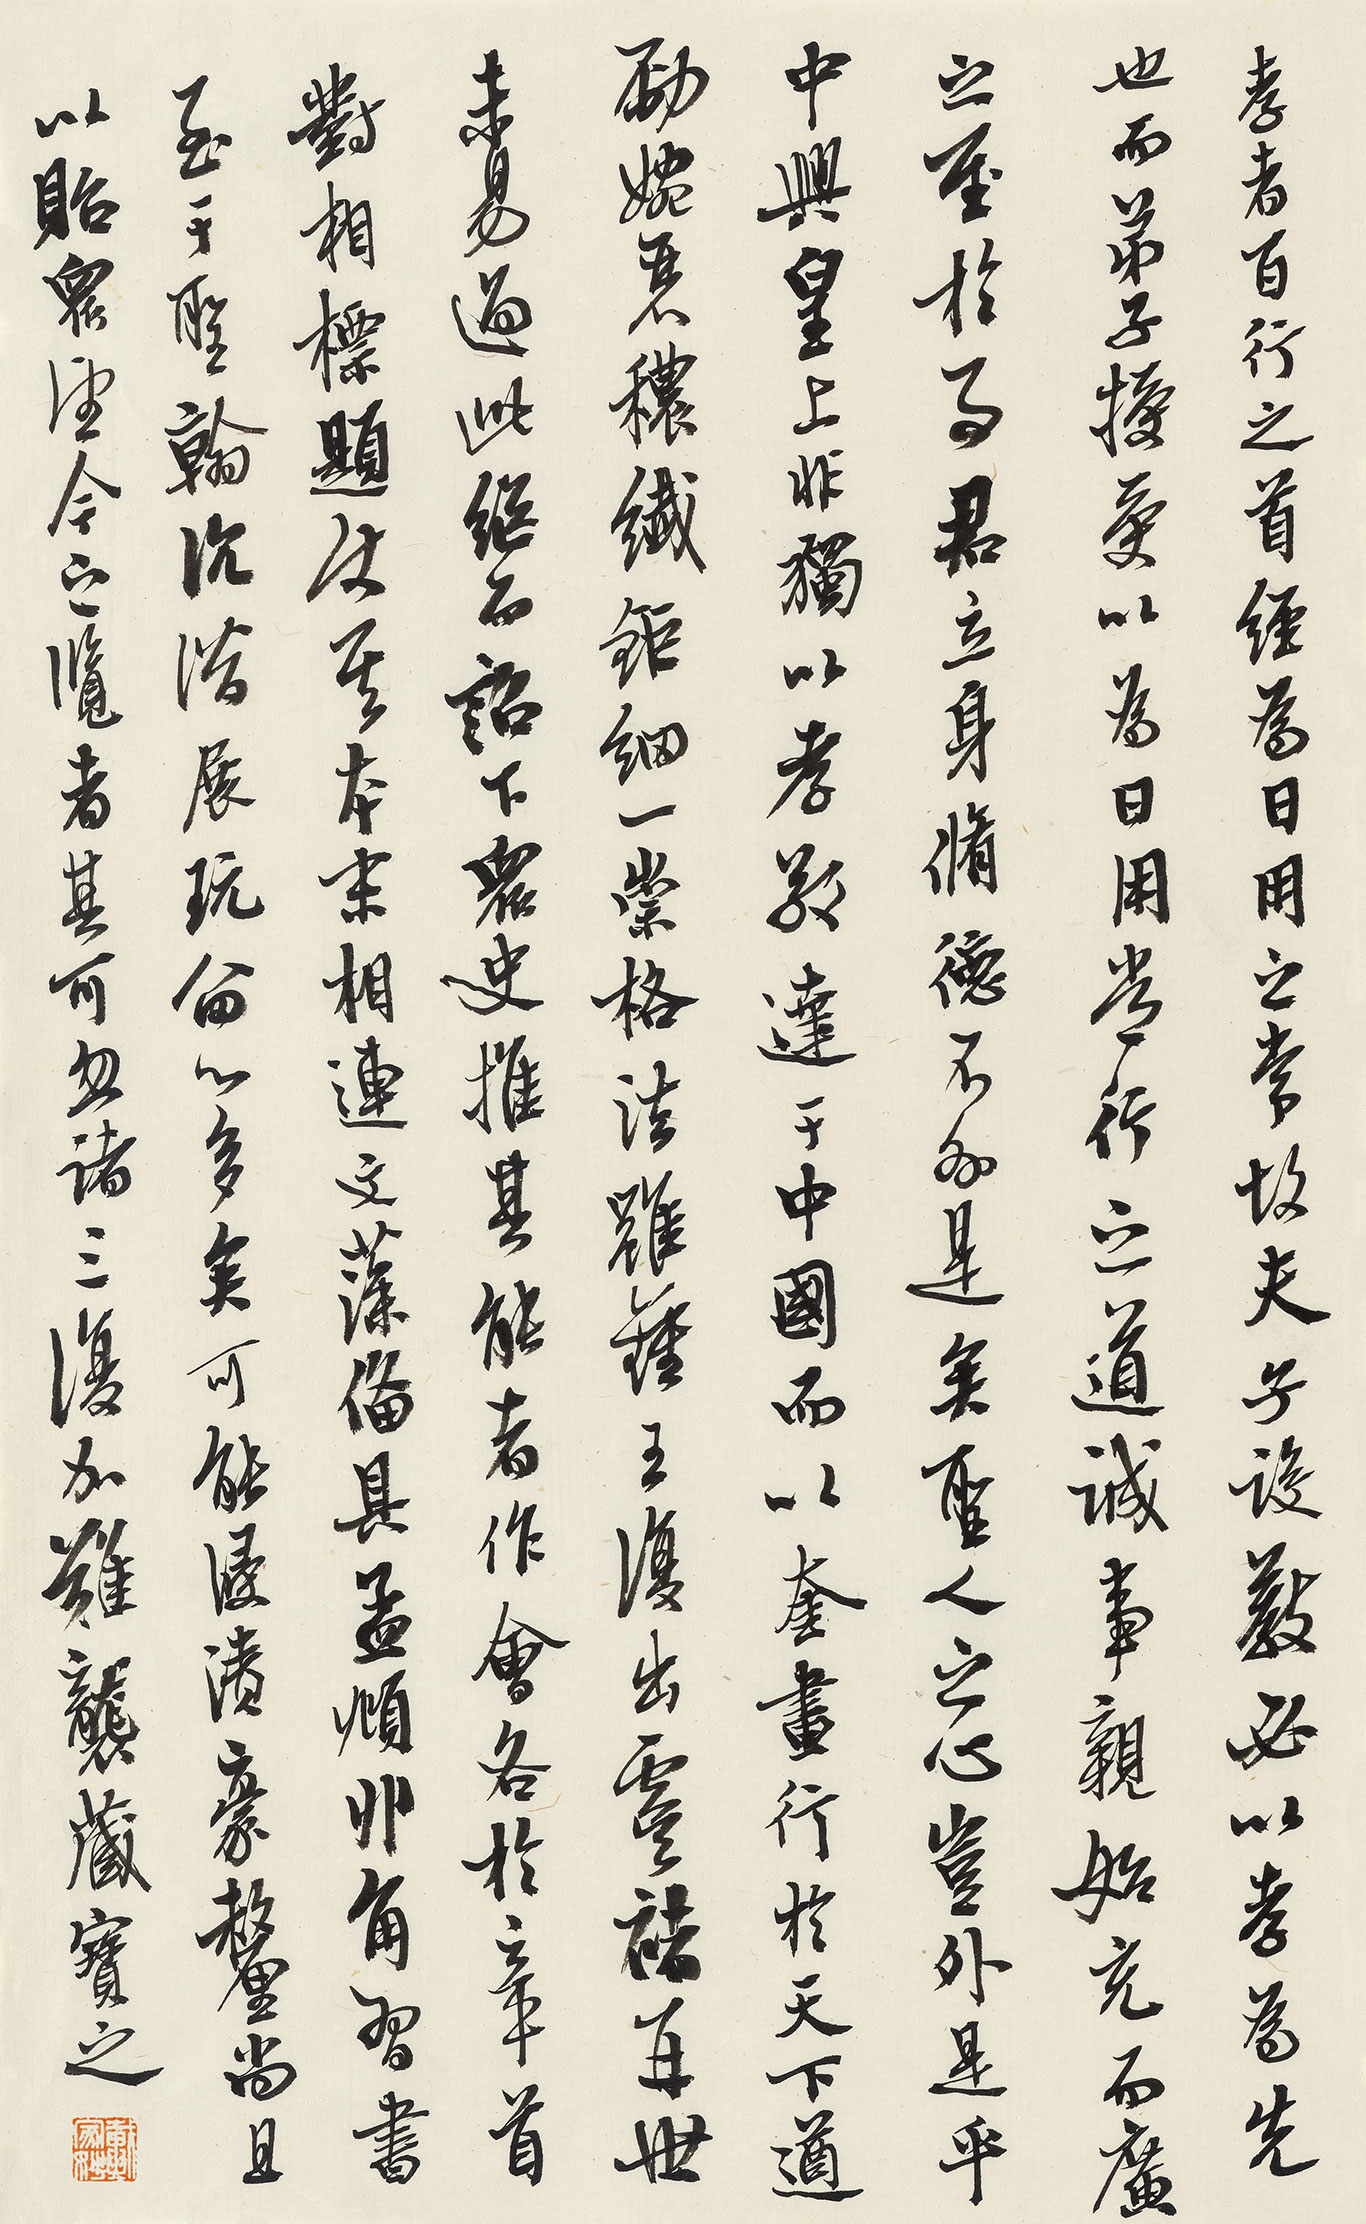 孝者百行之首經為日用之常故夫子設教必以孝為先
也而弟子授受以為日用常行之道誠事親始充而廣
之至於事君立身脩德不外是矣聖人之心豈外是乎
中興皇上非獨以孝敬達于中國而以奎畫行於天下遒
勁婉 穠纖鉅細一崇格法雖鍾王復出虞褚再世
未易過此繼而詔下眾史推其能者作會各於章首
對相標題使其本末相連文藻備具孟頫丱角習書
至于聖翰沉潛展玩命以多矣可能浸漬豪釐尚且
以貽眾 今之覽者其可忽諸三復加 襲藏寶之